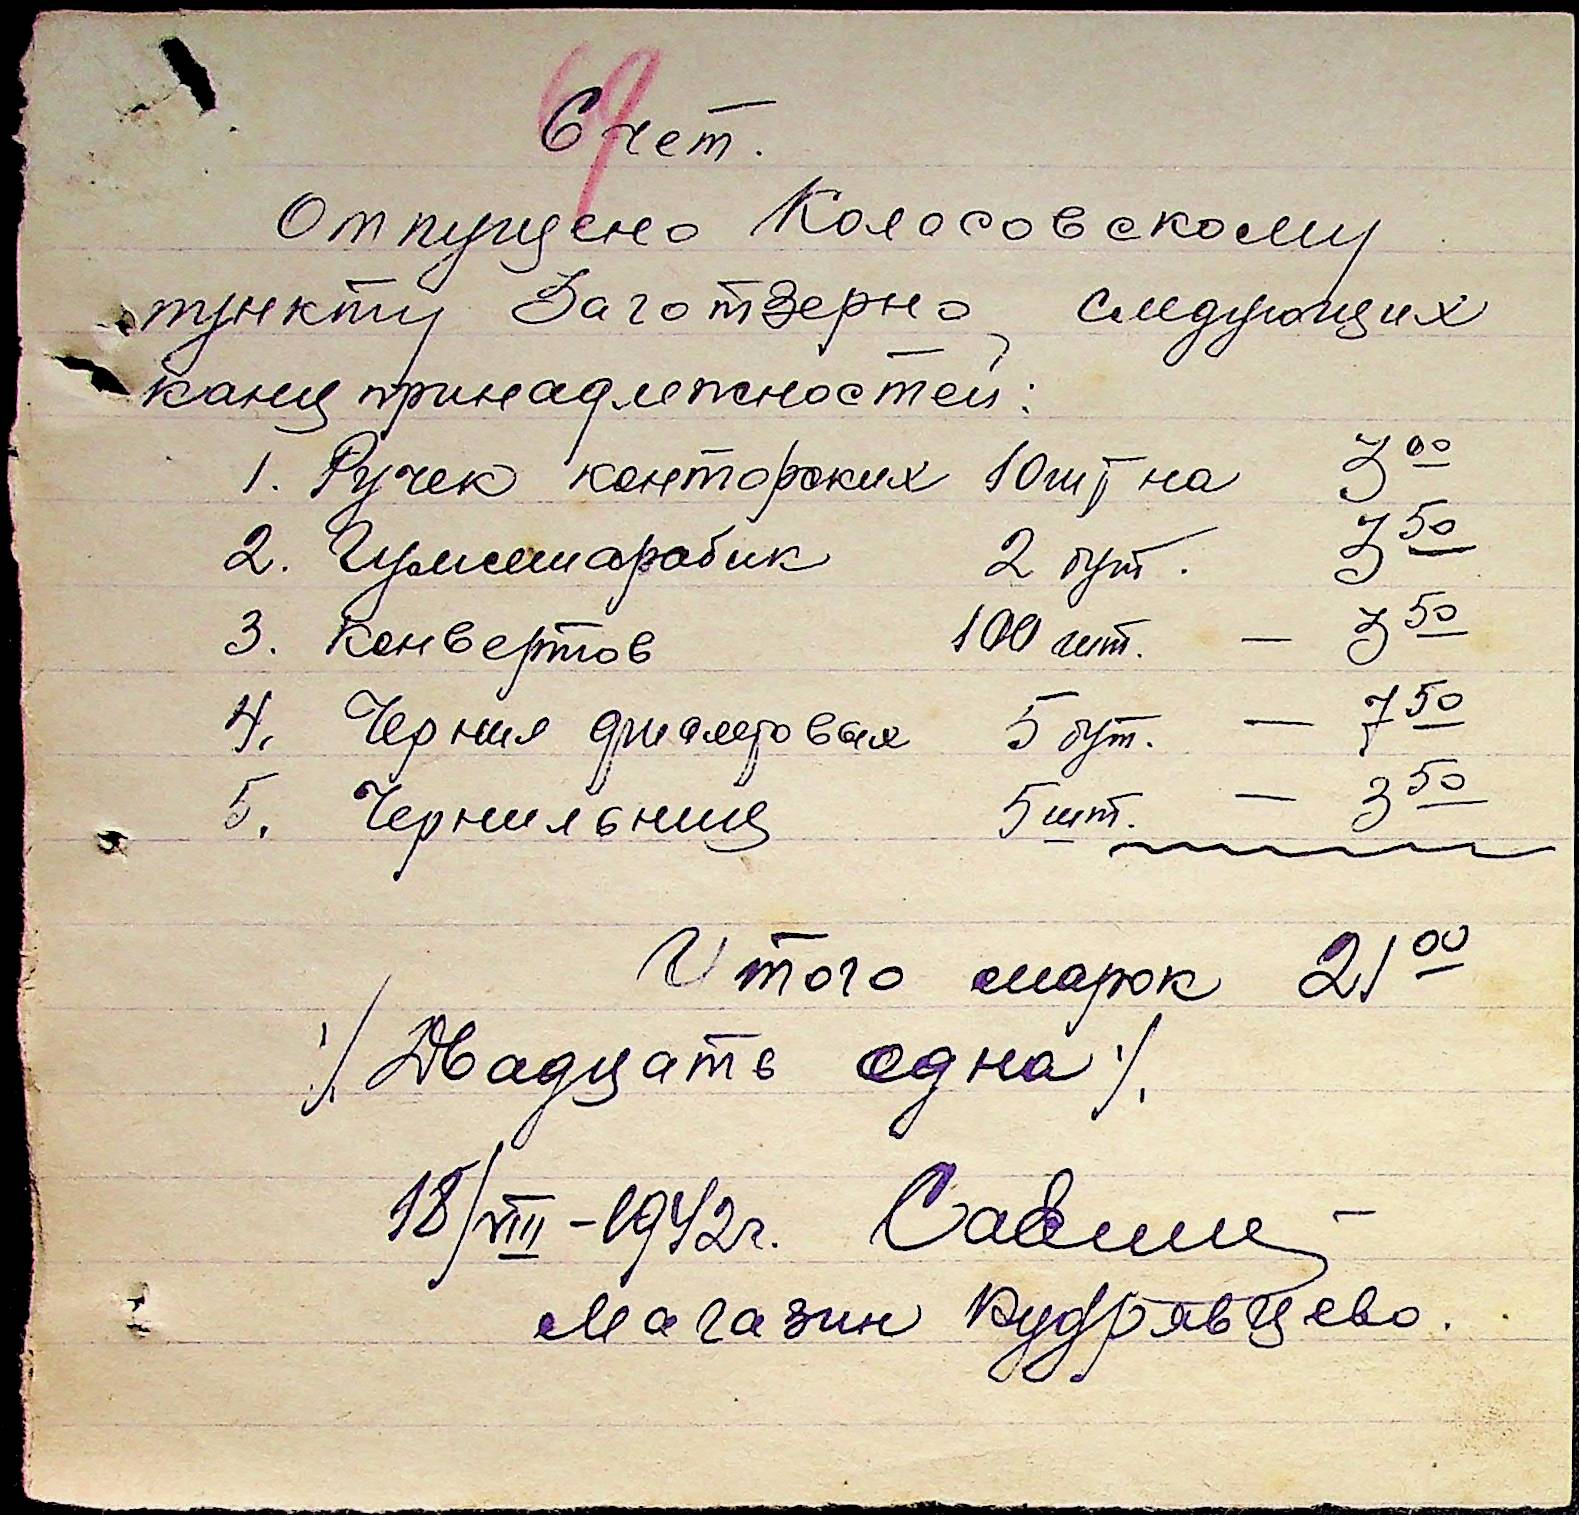 69
Счет.
Отпущено Колосовскому
пункту Заготзерно, следующих
канцпринадлежностей:
1. Ручек конторских 10 шт на 3 00
2. Гумиарабик 2 бут. 3 50
3. Конвертов 100 шт. — 3 50
4. Чернил фиолетовых 5 бут. — 7 50
5. Чернильниц 5 шт. — 3 50
Итого марок 21 00
/Двадцать одна/.
18/VIII – 1942 г. Савинц
Магазин Кудрявцево.